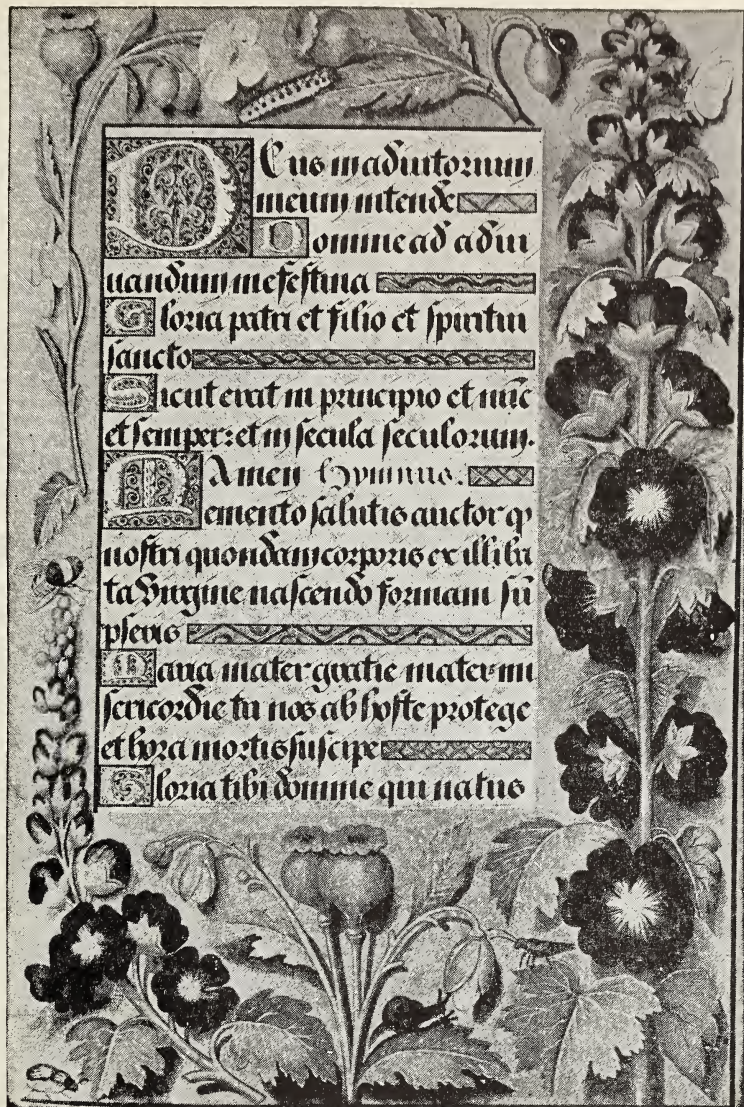 Deus in adiutorium
meum intende
Domine ad adiu
uandum me festina
Gloria patri et filio et spiritui
sancto
Sicut erat in principio et nūc
et semper: et in secula seculorum.
Amen hymnus.
Memento salutis auctor q
nostri quondam corporis ex illiba
ta virgine nascendo formam sū
pseris
Maria mater gratie mater mi
sericordie tu nos ab hoste protege
et hora mortis suscipe
Gloria tibi domine qui natus